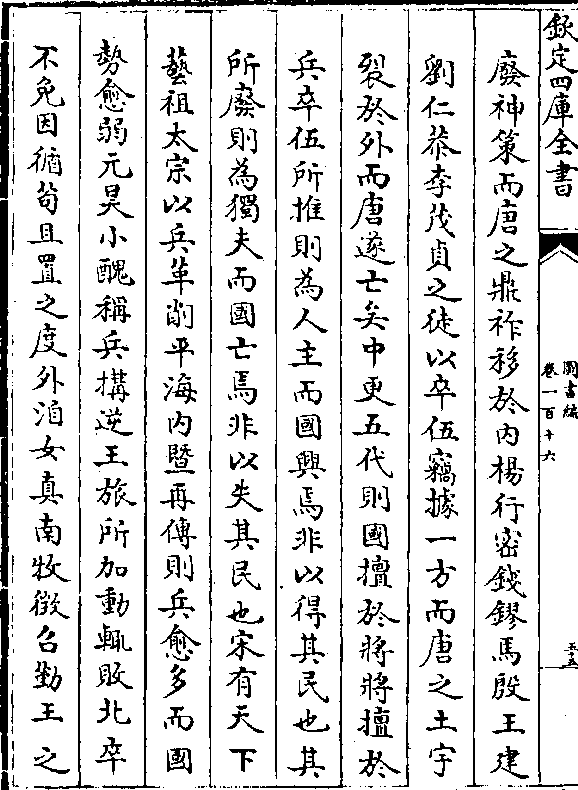 欽定四庫全書
圖書編
卷一百十六
五十五
廢神策而唐之鼎祚移於内楊行密錢鏐馬殷王建
劉仁恭李茂貞之徒以卒伍竊據一方而唐之土宇
裂於外而唐遂亡矣中更五代則國擅於將將擅於
兵卒伍所推則為人主而國興焉非以得其民也其
所廢則為獨夫而國亡焉非以失其民也宋有天下
藝祖太宗以兵革削平海内暨再傳則兵愈多而國
勢愈弱元昊小醜稱兵搆逆王旅所加動輒敗北卒
不免因循茍且置之度外洎女真南牧徵召勤王之